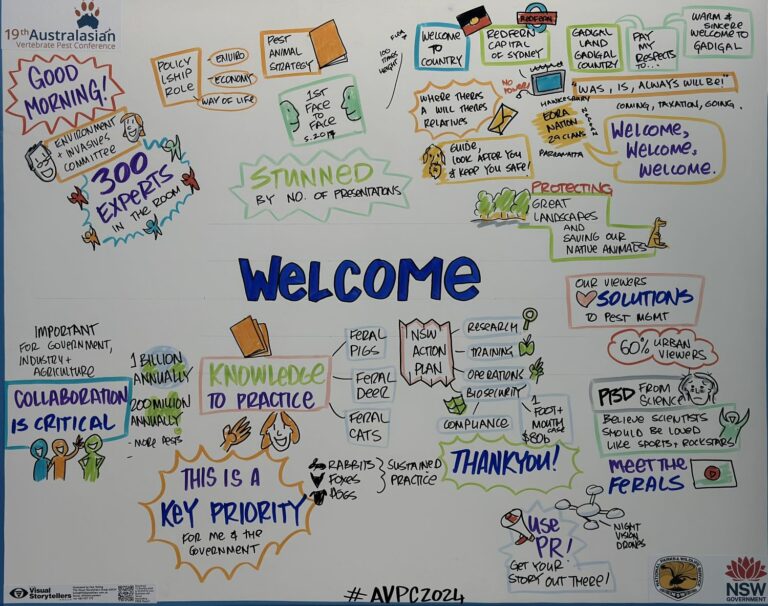 19th Australasian
Vertebrate Pest Conference
GOOD
MORNING!
ENVIRONMENT
+ INVASIVES
COMMITTEE
300
EXPERTS
IN THE ROOM
POLICY
L'SHIP
ROLE
ENVIRO
ECONOMY
WAY OF LIFE
PEST
ANIMAL
STRATEGY
1ST
FACE
TO
FACE
S. 2017
STUNNED
BY NO. OF PRESENTATIONS
FLEA
100
TIMES
HEIGHT
WELCOME
TO
COUNTRY
REDFERN
REDFERN
CAPITAL
OF SYDNEY
GADIGAL
LAND
GADIGAL
COUNTRY
PAY
MY
RESPECTS
TO...
WARM &
SINCERE
WELCOME TO
GADIGAL
WHERE THERES
A WILL THERES
RELATIVES
NO
POWER!
"WAS, IS, ALWAYS WILL BE!"
COMING, TAXATION, GOING.
HAWKESBURY
EORA
NATION
29 CLANS
PARRAMATTA
GUIDE,
LOOK AFTER YOU
& KEEP YOU SAFE!
WELCOME,
WELCOME,
WELCOME.
PROTECTING
GREAT
LANDSCAPES
AND
SAVING OUR
NATIVE ANIMALS
WELCOME
OUR VIEWERS
SOLUTIONS
TO PEST MGMT
60% URBAN
VIEWERS
IMPORTANT
FOR GOVERNMENT,
INDUSTRY +
AGRICULTURE
COLLABORATION
IS CRITICAL
1 BILLION
ANNUALLY
200 MILLION
ANNUALLY
- MORE PESTS
KNOWLEDGE
TO PRACTICE
FERAL
PIGS
FERAL
DEER
FERAL
CATS
NSW
ACTION
PLAN
RESEARCH
TRAINING
OPERATIONS
BIOSECURITY
COMPLIANCE
1
FOOT+
MOUTH
CASE
$80b
THANKYOU!
THIS IS A
KEY PRIORITY
FOR ME & THE
GOVERNMENT
RABBITS
FOXES
DOGS
SUSTAINED
PRACTICE
FROM
SCIENCE
BELIEVE SCIENTISTS
SHOULD BE LOVED
LIKE SPORTS, ROCKSTARS
MEET THE
FERALS
USE
PR!
GET YOUR
STORY OUT THERE!
NIGHT
VISION
DRONES
Visual
Storytellers
# AVPC2024
NSW
GOVERNMENT